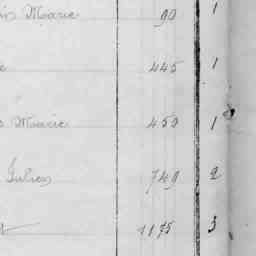 Marie 90 1
445 1
Marie 450 1
Julien 749 2
1175 3